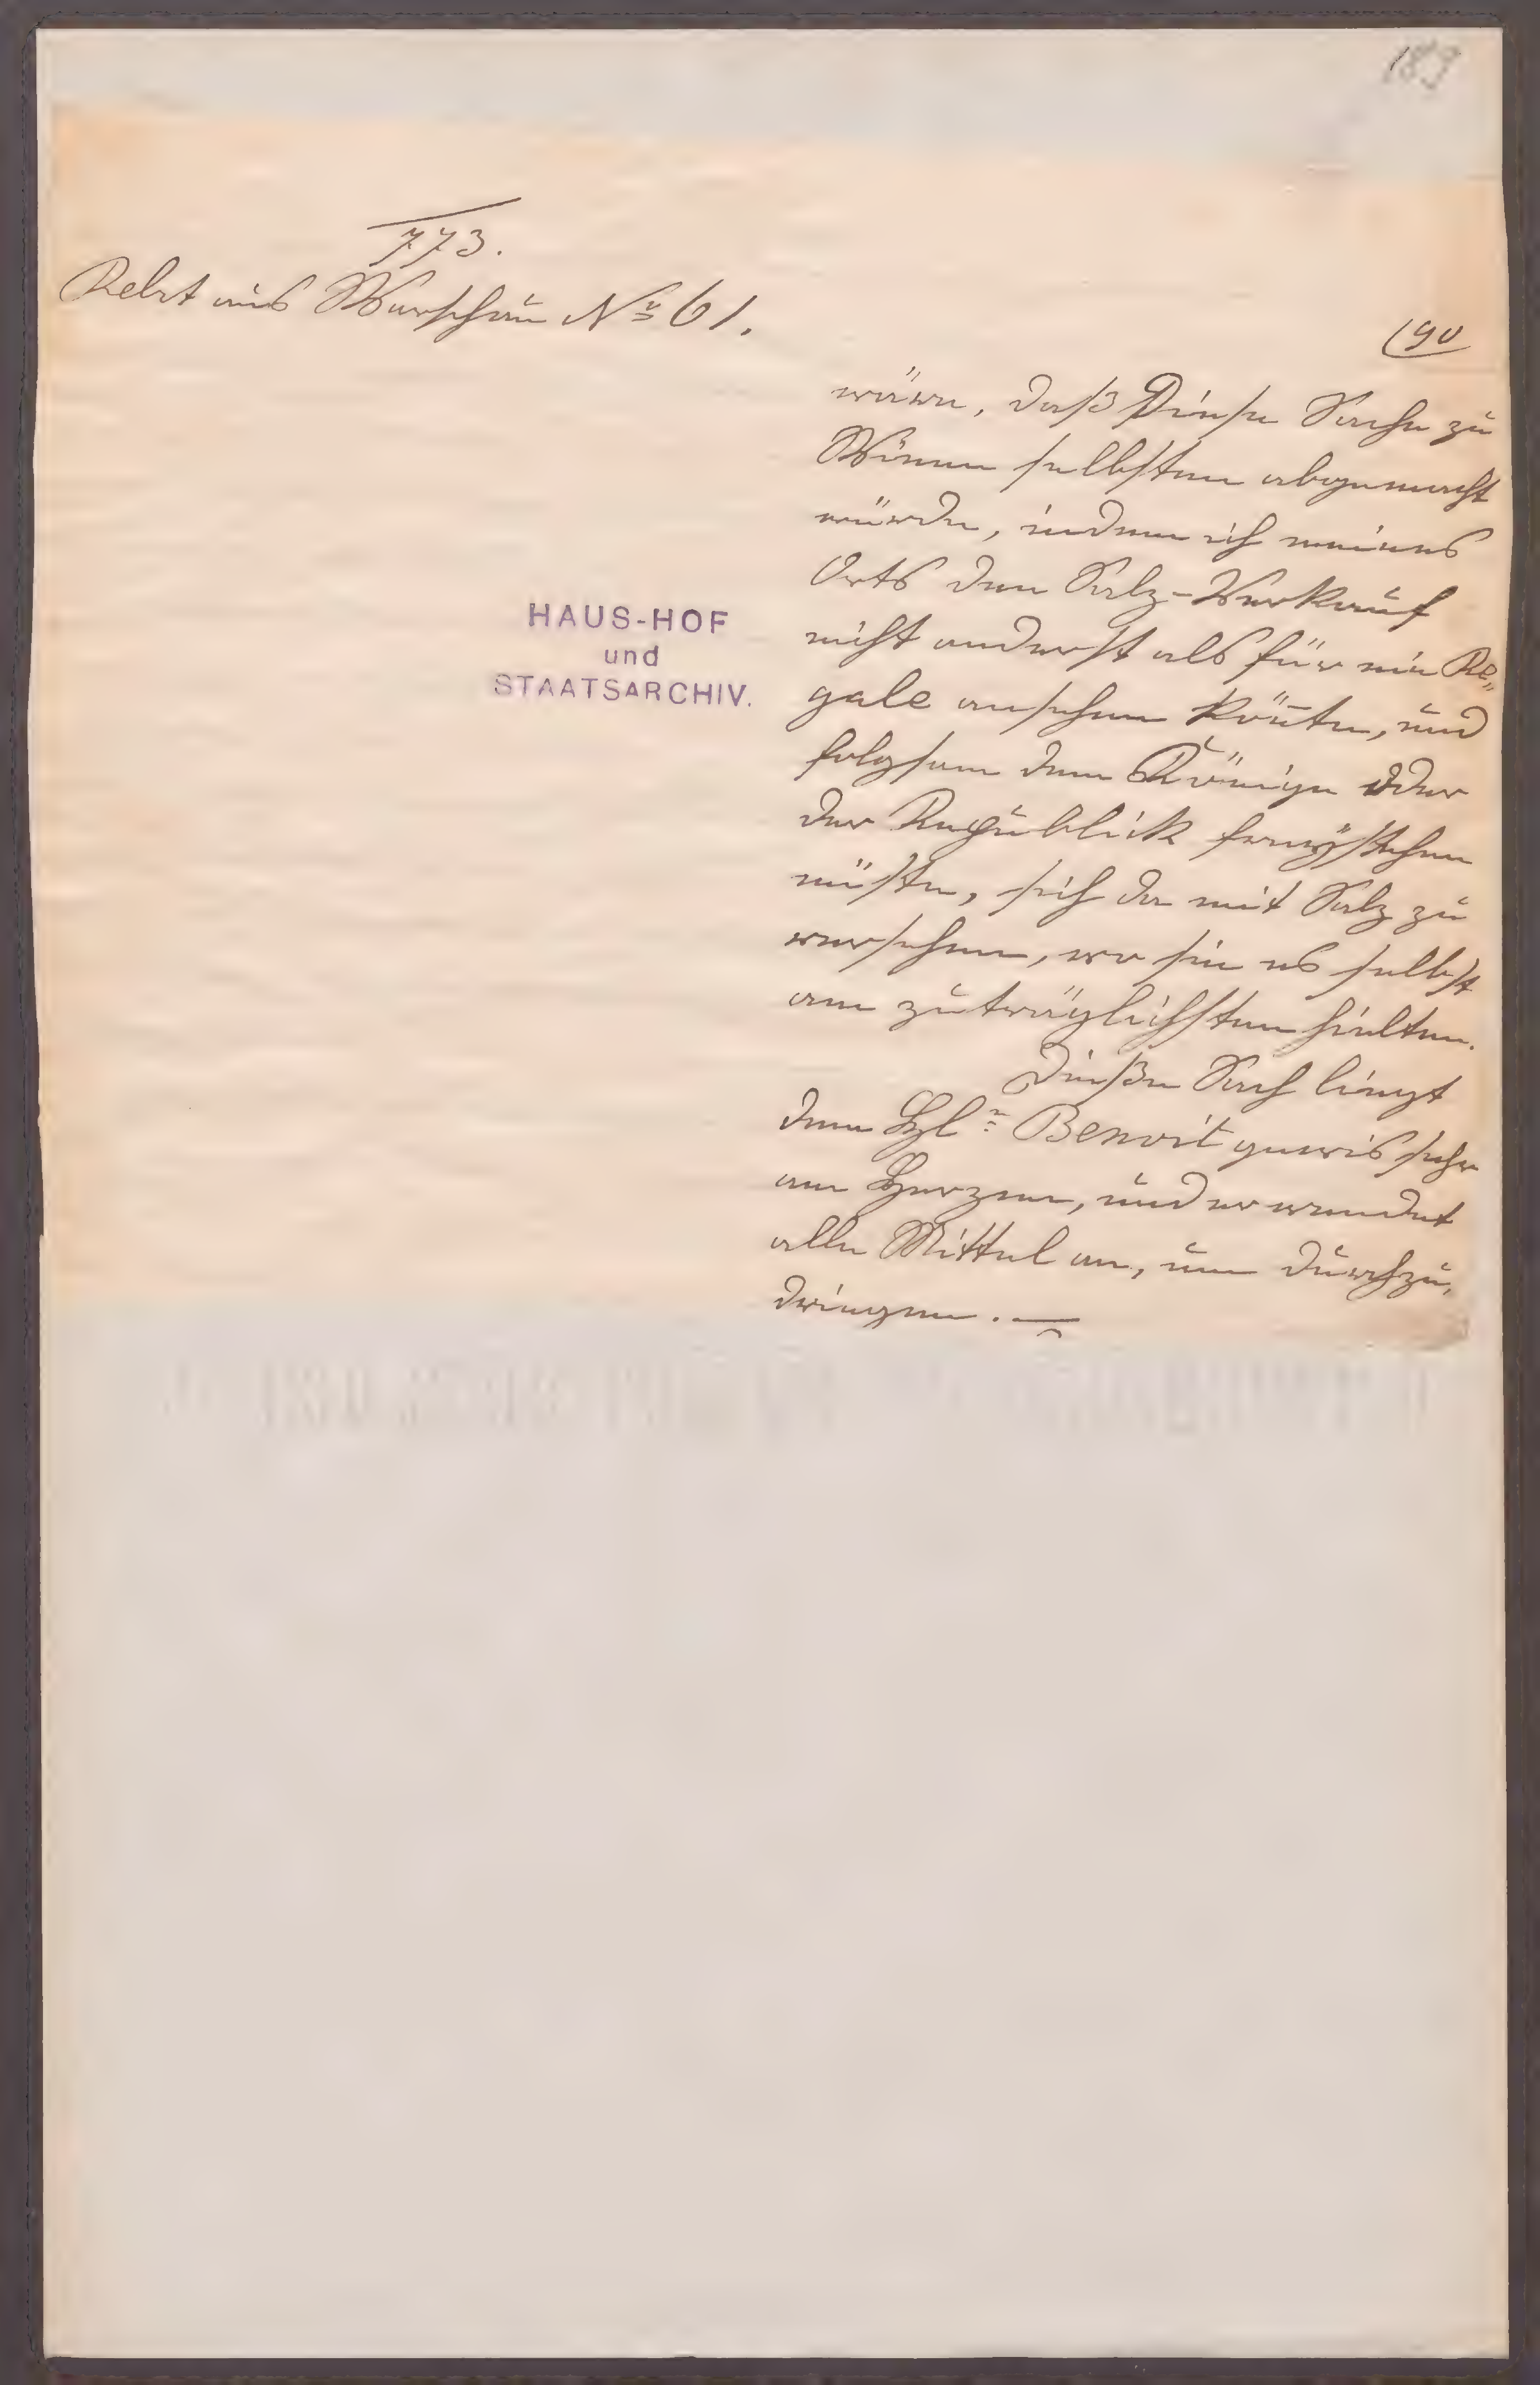 189
773.
Relat aus Warschau No 61.
190
HAUS-HOF
und
STAATSARCHIV.
wäre, daß Diese Sache zu
Wienn selbsten abgemacht
würde, indem ich meines
Orts den Salz-Verkauf
nicht anderst als für ein Re„
gale ansehen kön̄te, und
folgsam dem Könige oder
der Republick freystehen
müste, sich da mit Salz zu
versehen, wo sie es selbst
am zuträglichsten hielten.
Dießer Sach liegt
dem H. Benoit gewis sehr
am Herzen, und er wendet
alle Mittel an, um durchzu„
dringen. —